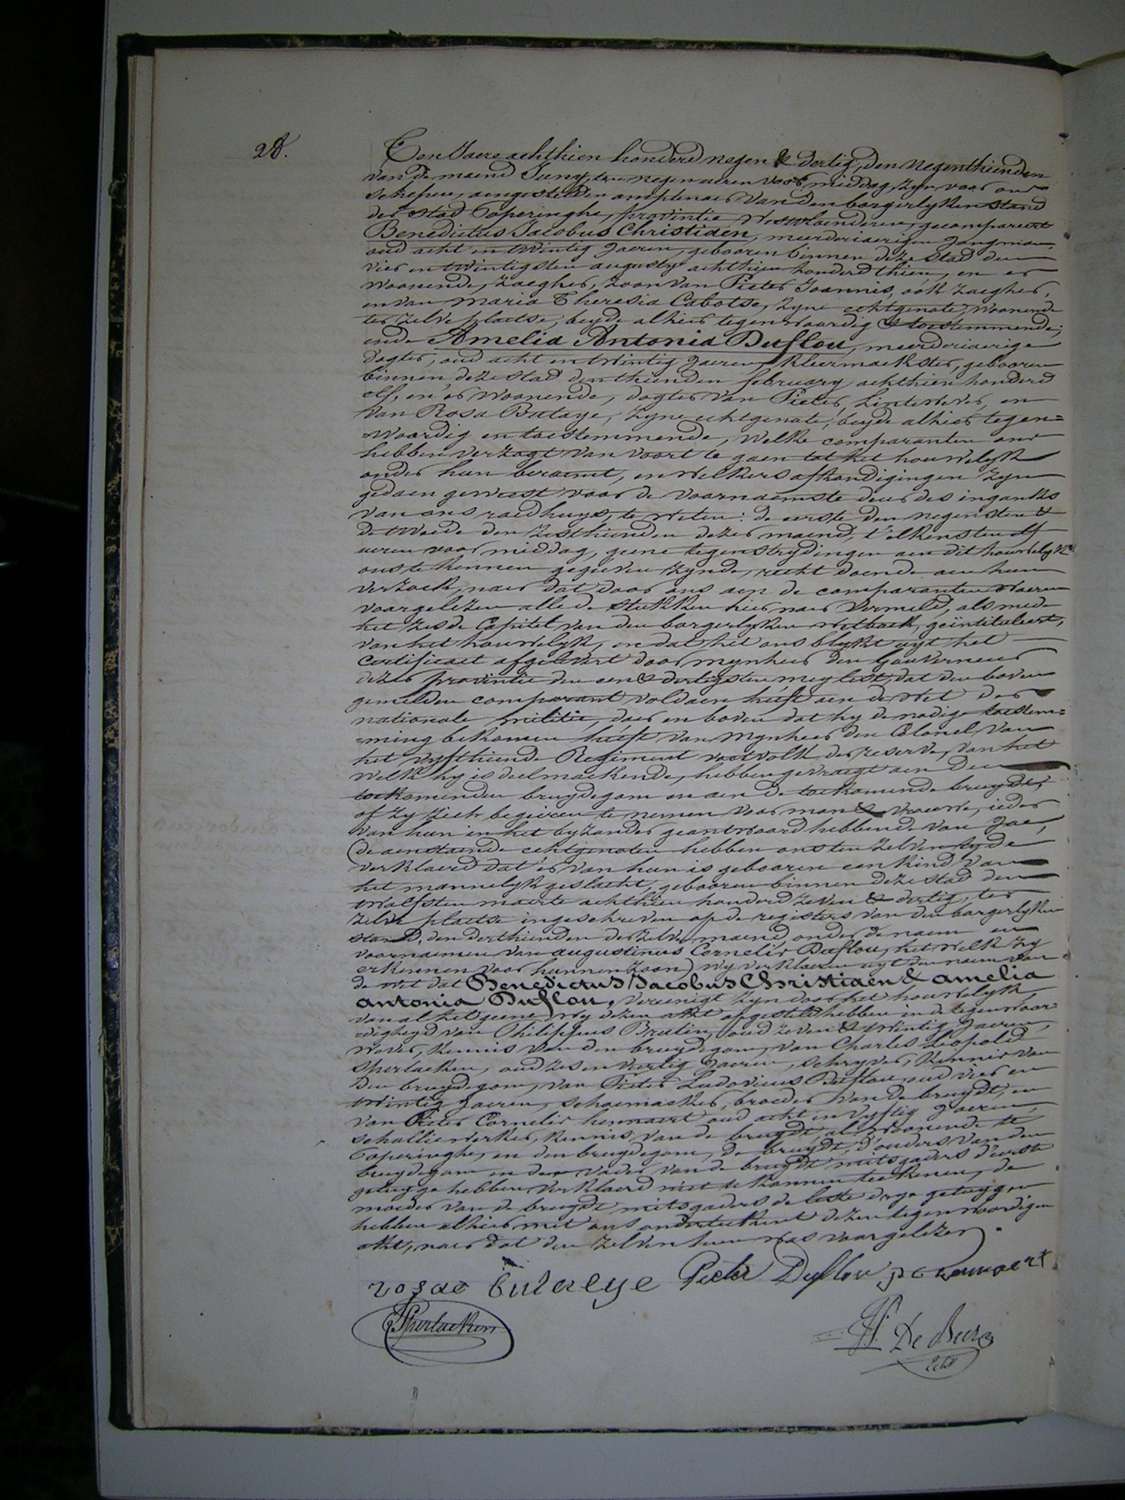 28.
Ten Jaere achthien honderd negen & dertig, den negenthienden
van de maend Juny, ten negen uren voor middag, zyn voor ons
schepene, aengestelden amptenaer van den borgerlyken stand
der stad Poperinghe, provintie Westvlaenderen, gecompareert
Benedictus Jacobus Christiaen, meerderjaerigen jongman,
oud acht en twintig jaeren, gebooren binnen deze stad den
vier en twintigsten augusty achthien honderd thien, en er
woonende, zaeger, zoon van Pieter Joannis, ook zaeger,
en van Maria Theresia Cabotse, zyne echtgenote, woonende
ter zelve plaetse, beyde alhier tegenwoordig & toestemmende;
ende Amelia Antonia Duflou, meerderjaerige
dogter, oud acht en twintig jaeren, kleermaekster, gebooren
binnen deze stad den thienden february achthien honderd
elf, en er woonende, dogter van Pieter, lintwever, en
van Rosa Butaye, zyne echtgenote, beyde alhier tegen=
woordig en toestemmende, welke comparanten ons
hebben verzogt van voort te gaen tot het houwelyk
onder hun beraemt, en welkers afkondigingen zyn
gedaen geweest voor de voornaemste deur des ingangs
van ons raedhuys, te weten: de eerste den negensten &
de tweede den zesthienden dezer maend, t'elkensten elf
uren voor middag, geene tegenstrydingen aen dit houwelyk
ons te kennen gegeven zynde, recht doende aen hun
verzoek, naer dat door ons aen de comparanten waeren
voorgelezen alle de stukken hier naer vermeld, als mede
het zesde Capitel van den borgerlyken wetboek, geïntituleert,
van het houwelyk, en dat het ons blykt uyt het
certificaet afgelevert door mynheer den Gouverneur
dezer provintie den een & dertigsten mey lest, dat den boven
gemelden comparant voldaen heeft aen de wet der
nationale militie, daer en boven dat hy de nodige toestem=
ming bekomen heeft van Mynheer den Colonel van
het vyfthiende Regiment voetvolk der reserve, van het
welk hy is deelmaekende, hebben gevraegt aen den
toekomenden bruydegom en aen de toekomende bruydt,
of zy zich begeeren te nemen voor man & vrouwe, ieder
van hun in het byzonder geantwoord hebbende van Jae,
(de aenstaende echtgenoten hebben ons ten zelven tyde
verklaerd dat er van hun is gebooren een kind van
het mannelyk geslacht, gebooren binnen deze stad den
twalfsten maerte achthien honderd zeven & dertig, ter
zelve plaetse ingeschreven op de registers van den borgerlyken
stand, den derthienden derzelve maend, onder de naem en
voornamen van augustinus Cornelis Duflou, het welk zy
erkennen voor hunnen zoon) wy verklaeren uyt den naem van
de wet dat Benedictus Jacobus Christiaen & Amelia
Antonia Duflou, vereenigt zyn door het houwelyk,
van al het geene wy dezen akt opgesteld hebben in de tegenwoor
digheyd van Philippus oud zeven & twintig jaeren,
wever, kennis van den bruydegom, van Charles Leopold
Sperlaeken, oud zes en veertig jaeren, schryver, kennis van
den bruydegom, van Pieter Ludovicus Duflou, oud vier en
twintig jaeren, schoenmaeker, broeder van de bruydt, en
van Pieter Cornelis Hennaert oud acht en vyftig jaeren,
schalliewerker, kennis van de bruydt, al woonende te
Poperinghe, en den bruydegom, de bruydt, d'ouders van den
bruydegom en den vader van de bruydt mitsgaders d'eerste
getuyge hebben verklaerd niet te konnen teekenen, de
moeder van de bruydt, mitsgaders de laste drye getuygen
hebben alhier met ons onderteekent dezen tegenwoordigen
akt, naer dat den zelven hun was voorgelezen.
rosae butaeye Pieter Duflou p c hennaert
Sperlaeken
De Beer